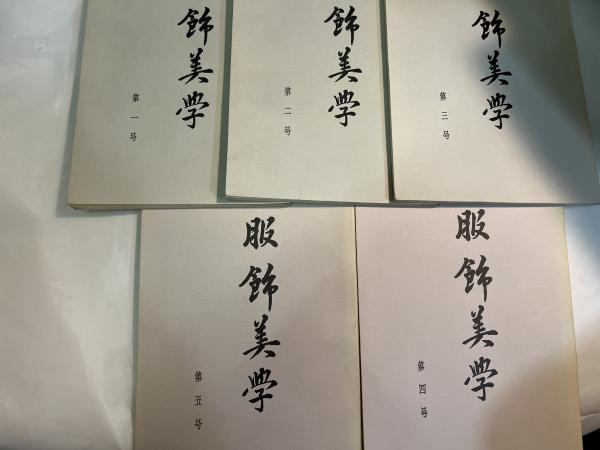 飾美学
第一号
飾美学
第二号
飾美学
第三号
服飾美学
第五号
服飾美学
第四号